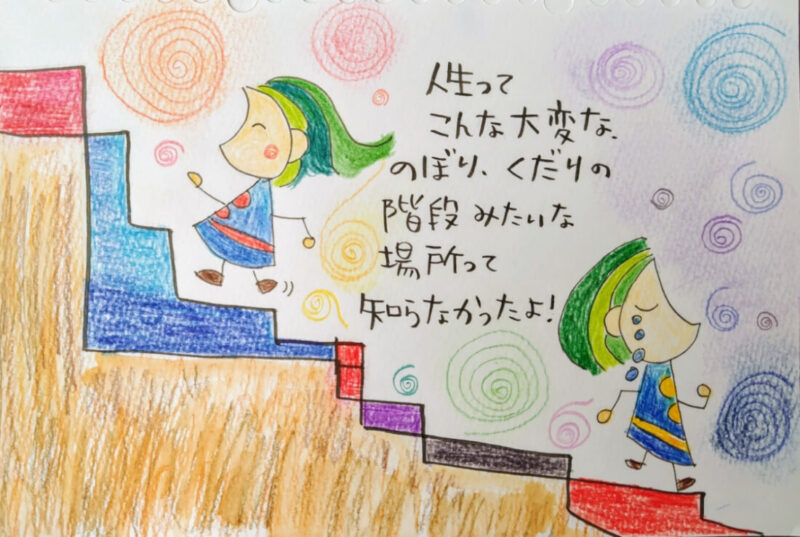 人生って
こんな大変な、
のぼり、くだりの
階段みたいな
場所って
知らなかったよ!